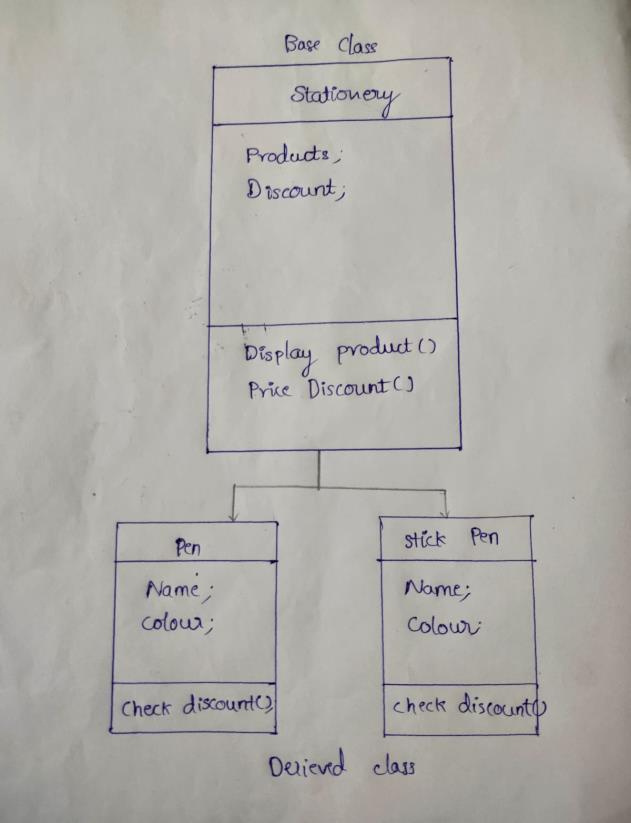 Base Class
Stationery
Products;
Discount;
Display product()
Price Discount()
Pen
Name;
colour;
check discount()
stick Pen
Name;
Colour;
check discount()
Derieved class